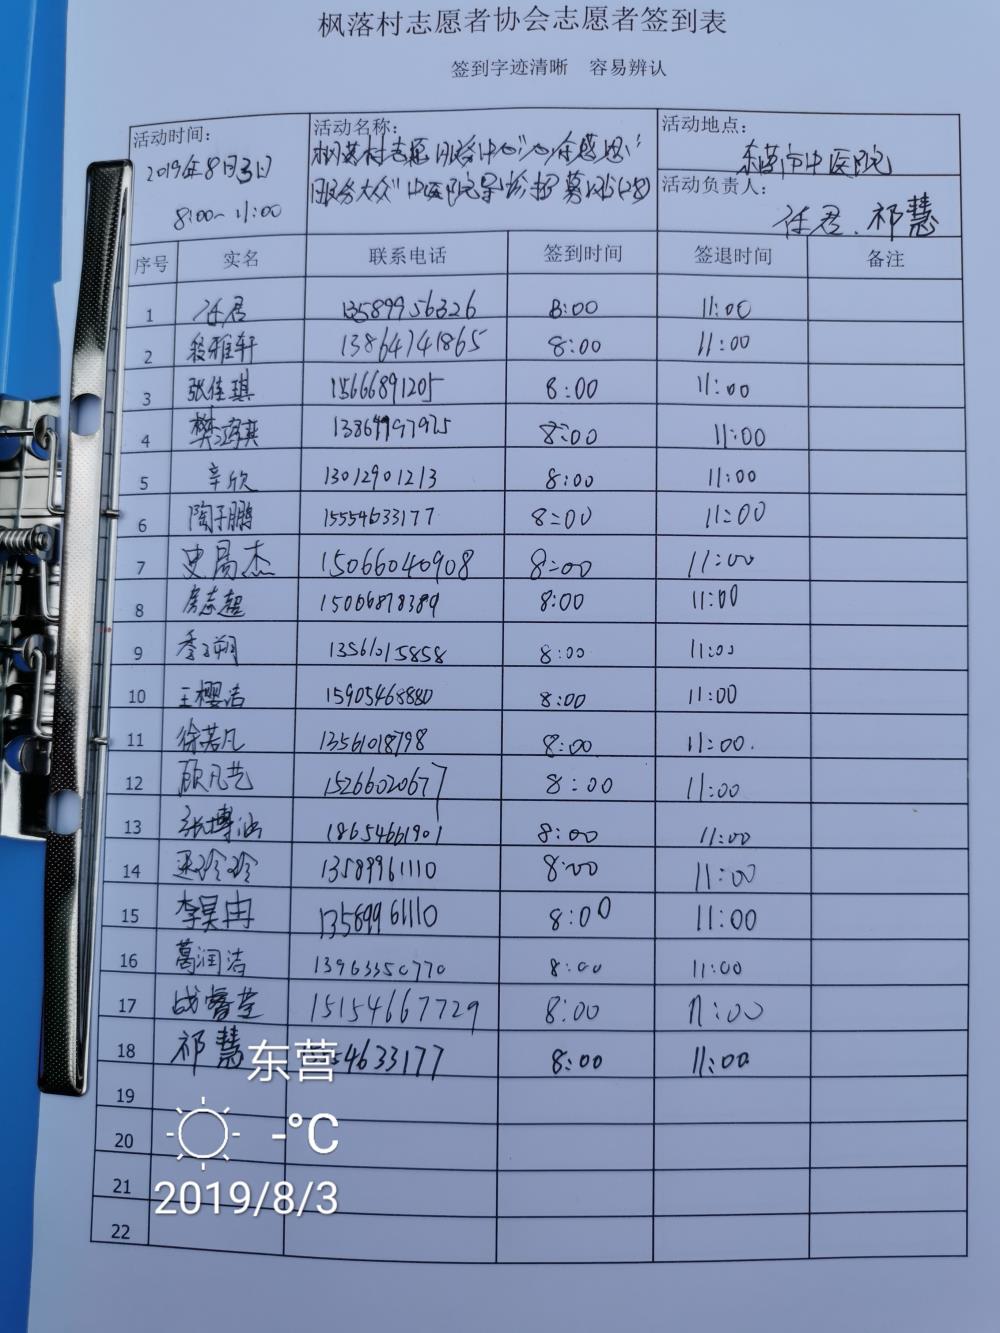 枫落村志愿者协会志愿者签到表
签到字迹清晰 容易辨认
活动时间：
2019年8月3日
8:00~11:00
活动名称：
枫落村志愿服务中心“心存感恩
服务大众”中医院导诊招募
活动地点：
东营市中医院
活动负责人：
任君、祁慧
序号 实名 联系电话 签到时间 签退时间 备注
1 任君 13589956326 8:00 11:00
2 段雅轩 13864741865 8:00 11:00
3 张佳琪 15666891205 8:00 11:00
4 樊鸿奕 8:00 11:00
5 辛欣 13012901213 8:00 11:00
6 陶子鹏 15554633177 8:00 11:00
7 史昌杰 15066040908 8:00 11:00
8 房志超 8:00 11:00
9 季子朔 13561015858 8:00 11:00
10 王樱洁 15905468880 8:00 11:00
11 徐若凡 13561018798 8:00 11:00.
12 顾凡艺 15266020677 8:00 11:00
13 张博涵 18654661901 8:00 11:00
14 玲玲 13589961110 8:00 11:00
15 李昊冉 13589961110 8:00 11:00
16 葛润洁 13963350770 8:00 11:00
17 战睿莹 15154667729 8:00 11:00
18 祁慧 54633177 8:00 11:00
东营
19
20
-°C
21
2019/8/3
22